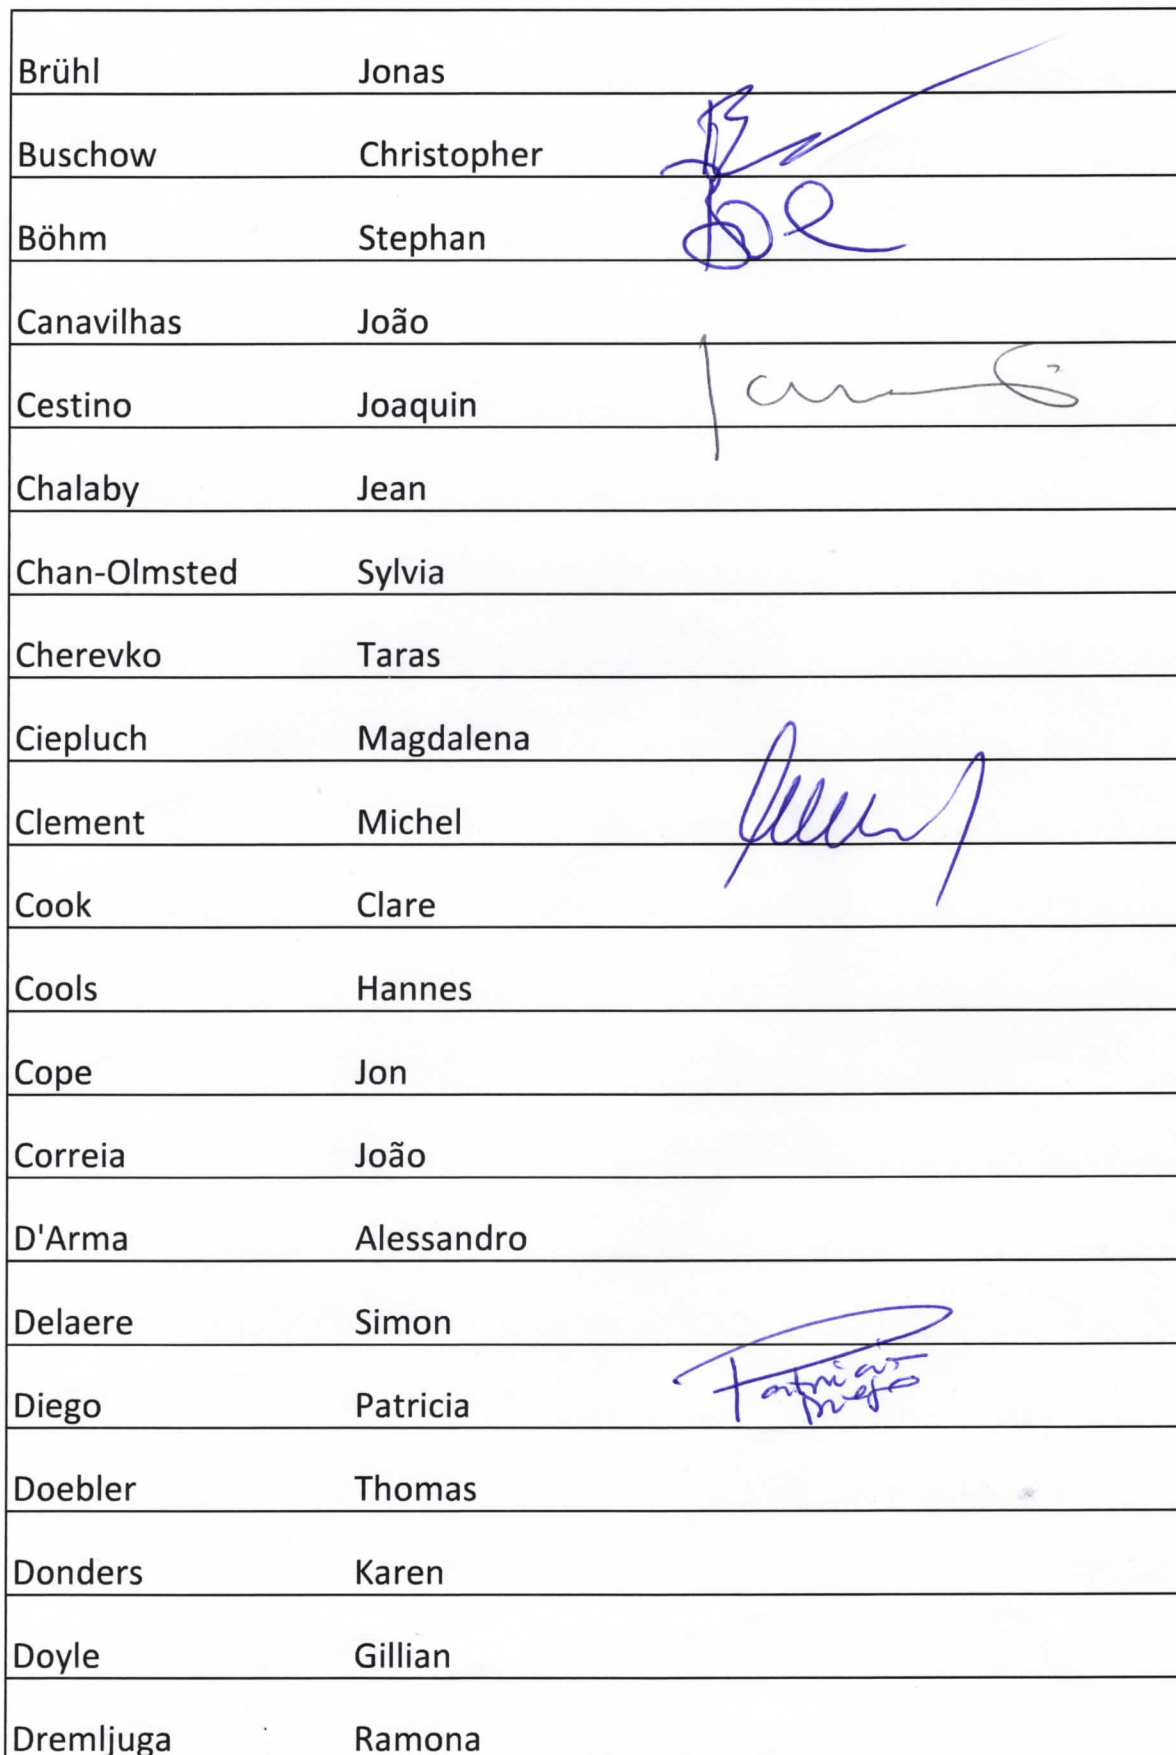 Brühl Jonas
Buschow Christopher
Böhm Stephan
Canavilhas João
Cestino Joaquin
Chalaby Jean
Chan-Olmsted Sylvia
Cherevko Taras
Ciepluch Magdalena
Clement Michel
Cook Clare
Cools Hannes
Cope Jon
Correia João
D'Arma Alessandro
Delaere Simon
Diego Patricia Patricia
Diego
Doebler Thomas
Donders Karen
Doyle Gillian
Dremljuga Ramona